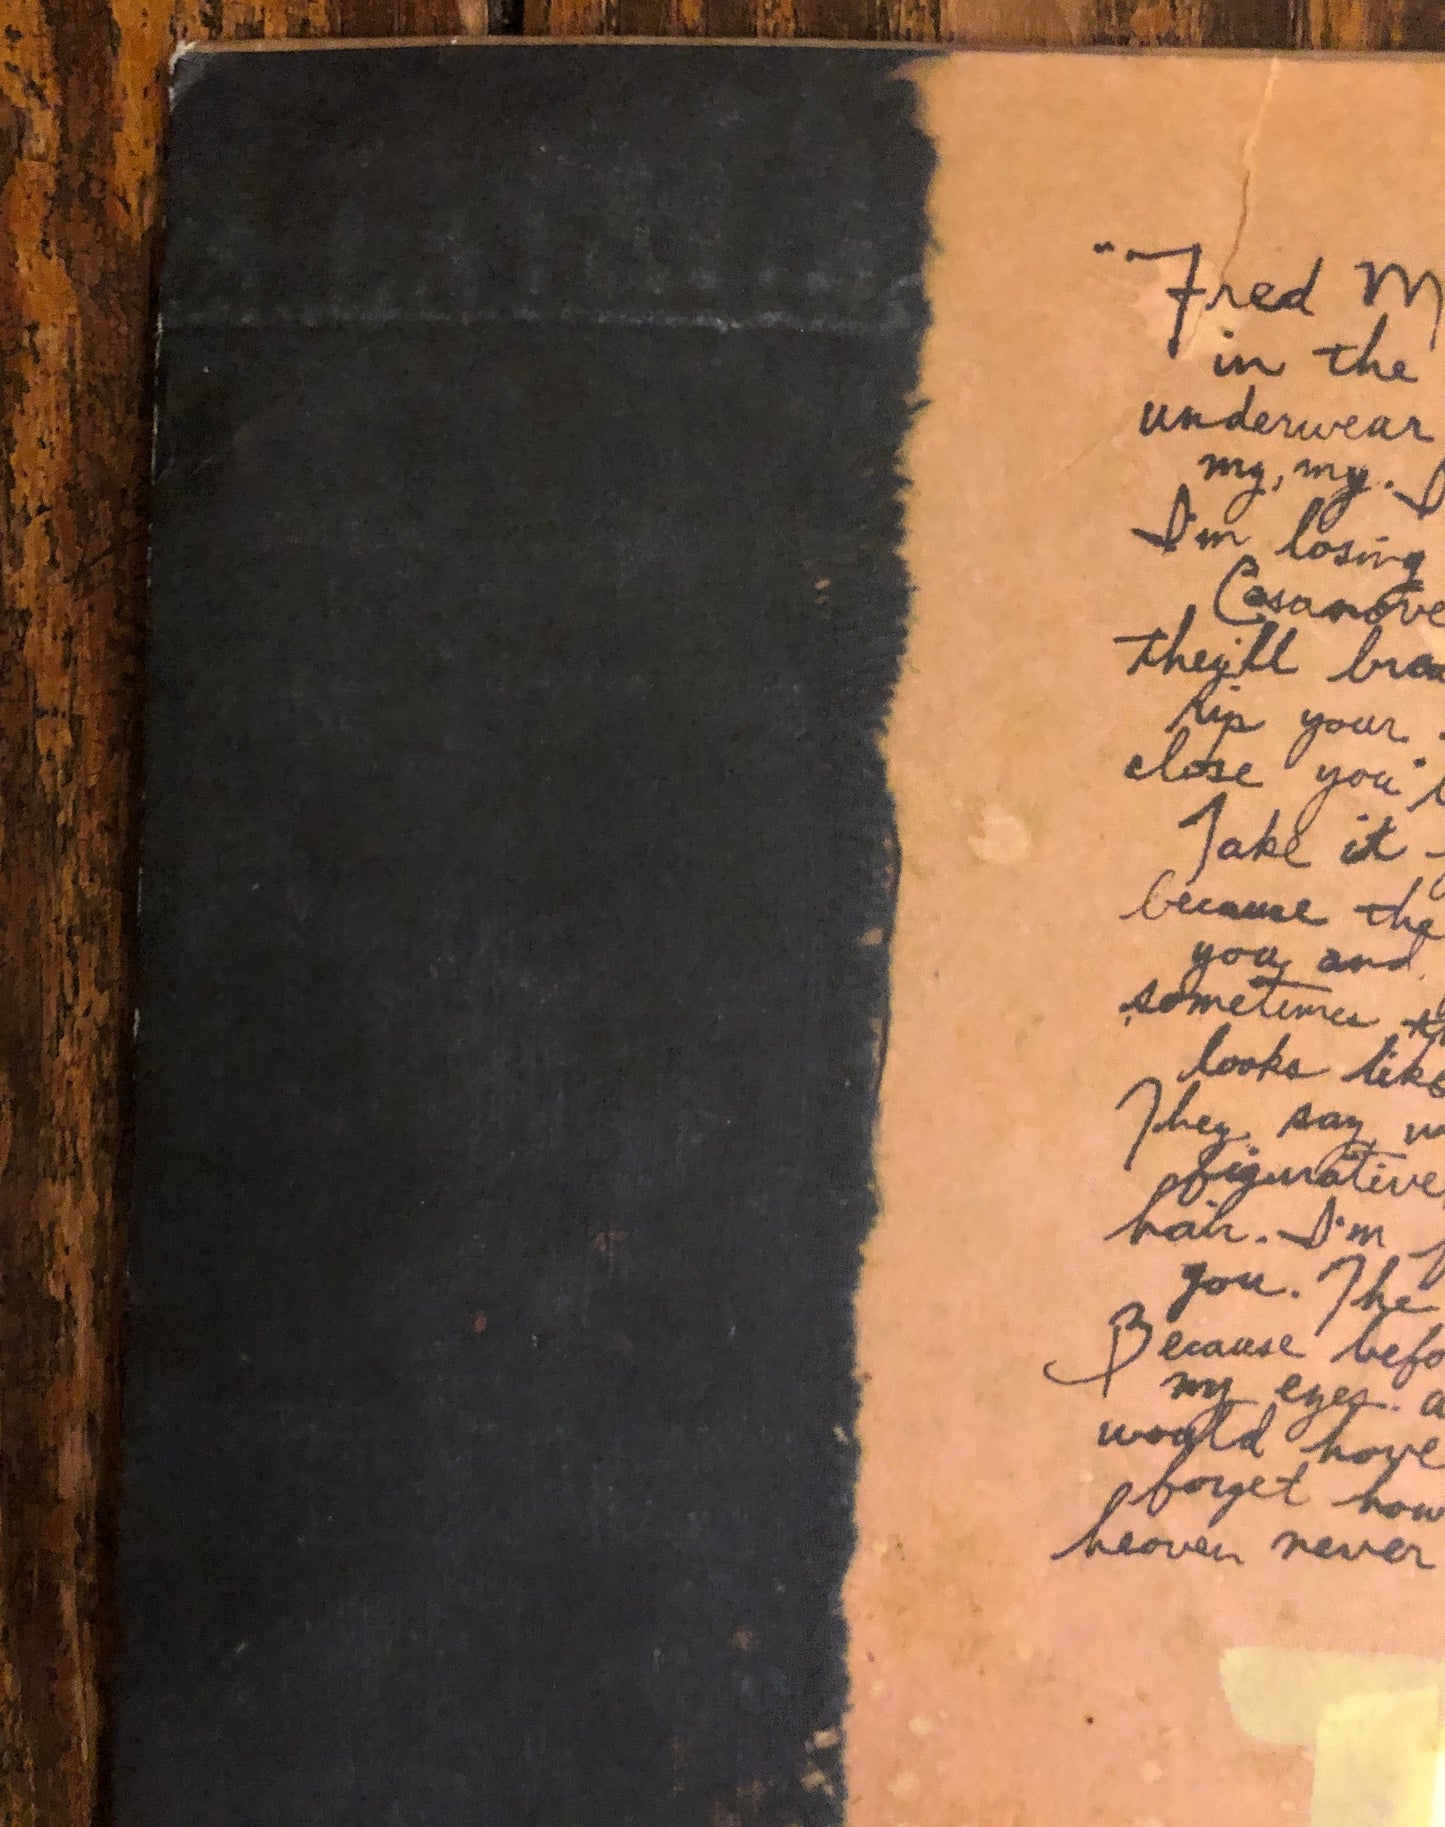 "Fred M
in the
underwear
my, my. I
I'm losing
Casanove
they'll brea
rip your
close you'l
Take it
because the
you and
sometimes th
looks like
They say w
figurative
hair. I'm f
you. The
Because befo
my eyes. a
would have
forget how
heaven never